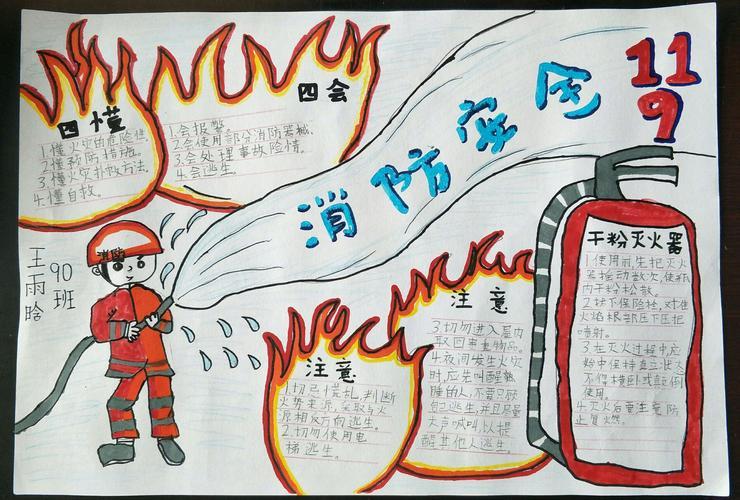 消防安全
119
四懂
1.懂火灾的危险性.
2.懂预防措施.
3.懂火灾扑救方法.
4.懂自救.
四会
1.会报警.
2.会使用部分消防器械.
3.会处理事故险情.
4.会逃生.
消防
王雨晗
90班
注意
1.切忌慌乱,判断
火势来源,采取与火
源相反方向逃生.
2.切勿使用电
梯逃生.
注意
3.切勿进入屋内
取回贵重物品.
4.夜间发生火灾
时,应先叫醒熟
睡的人,不要只顾
自己逃生,并且尽量
大声喊叫,以提
醒其他人逃生.
干粉灭火器
1.使用前,先把灭火
器摇动数次,使瓶
内干粉松散.
2.拔下保险栓,对准
火焰根部压下压把
喷射.
3.在灭火过程中,应
始中保持直立状态
不得横卧或颠倒
使用.
4.灭火后要注意防
止复燃.